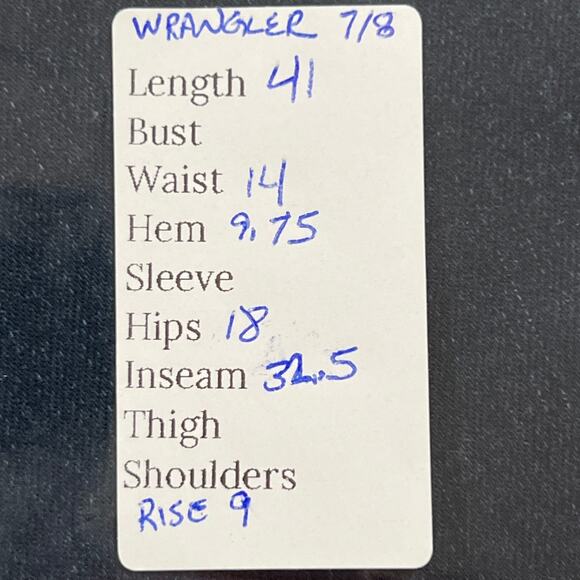 WRANGLER 7/8
Length 41
Bust
Waist 14
Hem 9.75
Sleeve
Hips 18
Inseam 32.5
Thigh
Shoulders
RISE 9